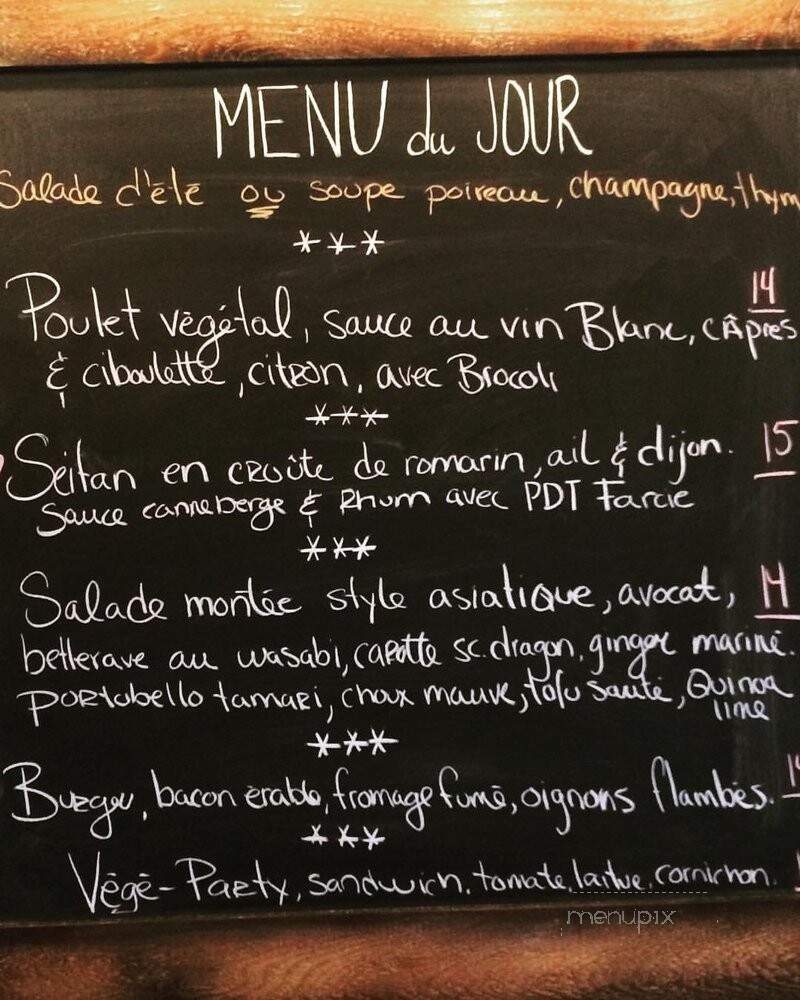 MENU du JOUR
Salade d'été ou soupe poireau, champagne, thym
***
14
Poulet végétal, sauce au vin Blanc, cÂpres
& ciboulette, citron, avec Brocoli
***
Seitan en croûte de romarin, ail & dijon. 15
Sauce canneberge & Rhum avec PDT Farcie
***
Salade montée style asiatique, avocat, 14
betterave au wasabi, carotte sc. dragon, ginger mariné.
portobello tamari, choux mauve, tofu sauté, Quinoa
lime
***
Burger, bacon érable, fromage fumé, oignons flambés.
***
Végé-Party, sandwich, tomate, laitue, cornichon.
menupix